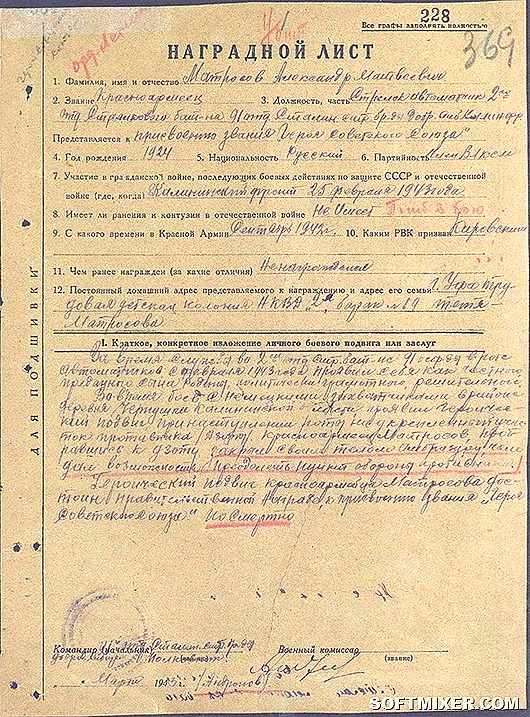 Убит
228
Все графы заполнять полностью
369
НАГРАДНОЙ ЛИСТ
1. Фамилия, имя и отчество Матросов Александр Матвеевич
2. Звание Красноармеец 3. Должность, часть Стрелок автоматчик 2го
отд. Стрелкового бат-на 91 отд. Сталин. стр. бр-ды
Представляется к присвоению звания "Героя Советского Союза"
4. Год рождения 1924 5. Национальность Русский 6. Партийность член ВЛКСМ
7. Участие в гражданской войне, последующих боевых действиях по защите СССР и отечественной
войне (где, когда) Калининский фронт 25 февраля 1943 года
8. Имеет ли ранения и контузии в отечественной войне Не имеет Погиб в бою
9. С какого времени в Красной Армии Сентябрь 1942г. 10. Каким РВК призван Кировским
11. Чем ранее награжден (за какие отличия) Ненагражден
12. Постоянный домашний адрес представляемого к награждению и адрес его семьи г. Уфа Тру-
довая детская колония НКВД 2я, барак №19 тетя-
Матросова
ДЛЯ ПОДШИВКИ
I. Краткое, конкретное изложение личного боевого подвига или заслуг
За время службы во 2ом отд. стр. бат-не 91 бригады в роте
автоматчиков с февраля 1943 года проявил себя как честного
преданного сына родины, политически грамотного, решительного
За время боев с немецкими захватчиками в районе
деревня Чернушки Калининской области проявил героичес-
кий подвиг при наступлении роты на укрепленный учас-
ток противника (дзоты) Красноармеец Матросов, проб-
равшись к дзоту закрыл своим телом амбразуру, чем
дал возможность преодолеть пункт обороны противника.
Героический подвиг красноармейца Матросова дос-
тоин правительственной награды к присвоению звания "Героя
Советского Союза" посмертно
Командир (начальник) Военный комиссар
Полковник (звание)
Марта 1943г. /Андронов/
SOFTMIXER.COM